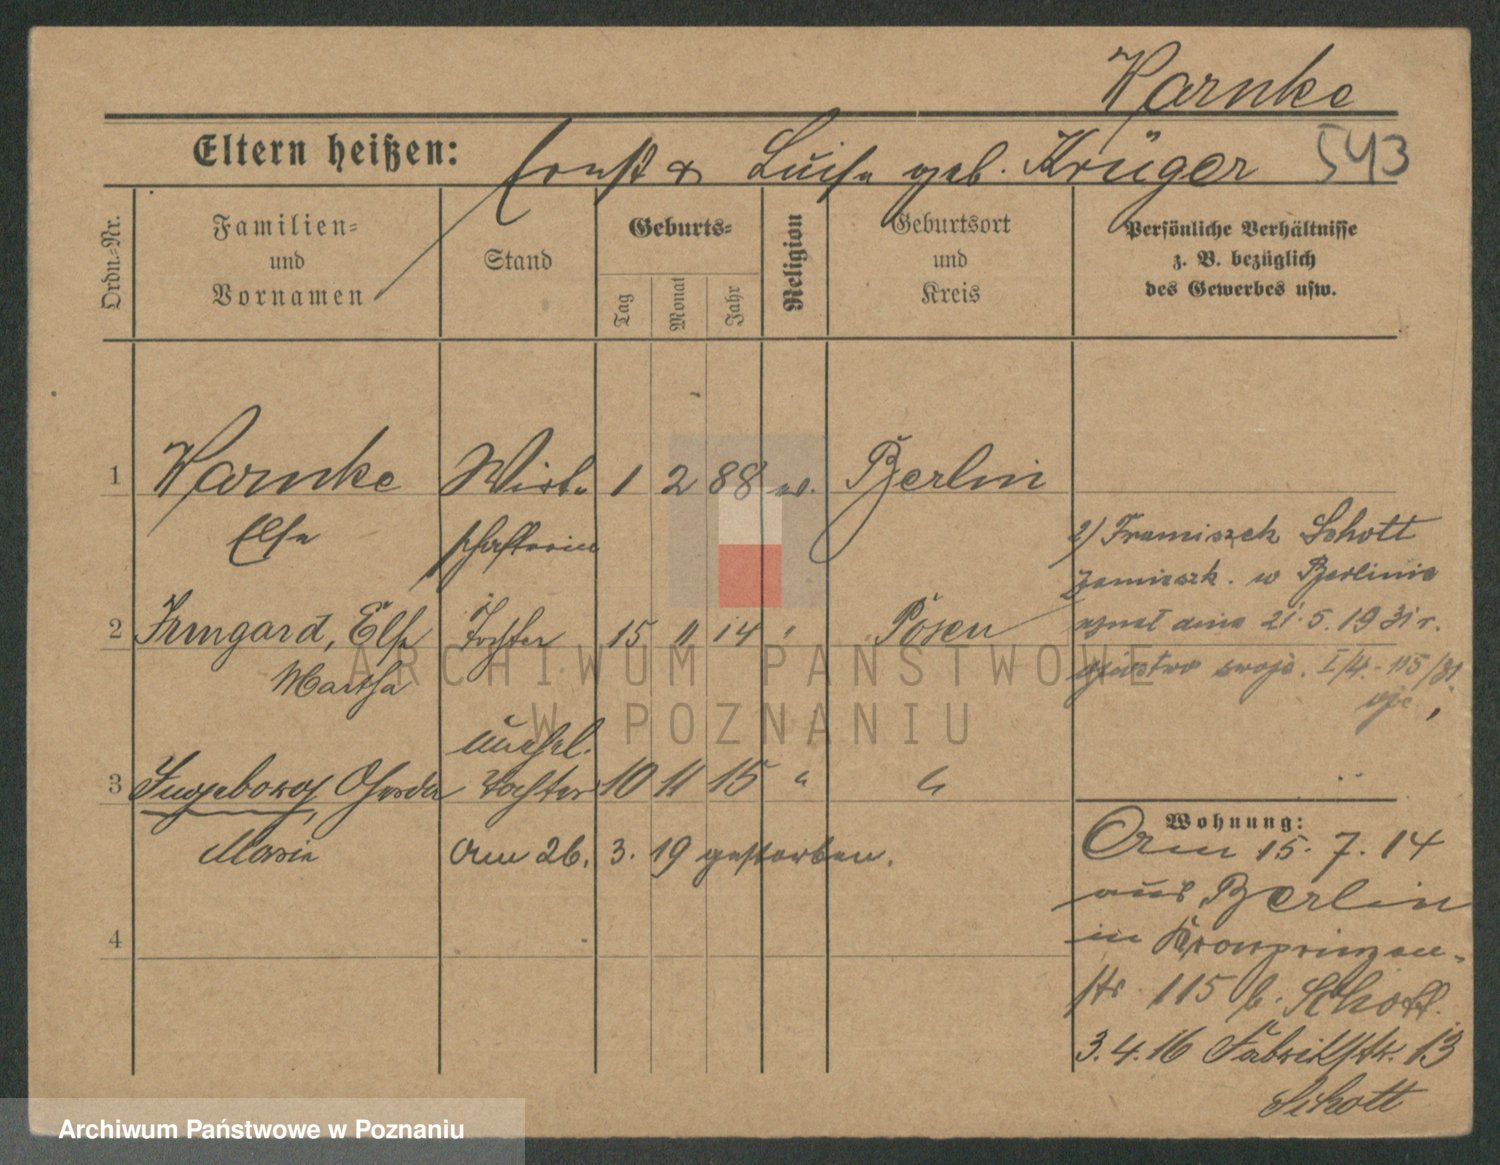 Warnke
Eltern heißen: Ernst & Luise geb. Krüger 543
Ordn.-Nr.
Familien-
und
Vornamen
Stand
Geburts-
Tag
Monat
Jahr
Religion
Geburtsort
und
Kreis
Persönliche Verhältnisse
z. B. bezüglich
des Gewerbes usw.
1 Warnke Wirt- 1 2 88 ev. Berlin
Else schafterin
2 Irmgard, Else Tochter 15 11 14 " Posen
Martha
unehel.
3 Ingeborg, Gerda Tochter 10 11 15 " "
Maria Am 26. 3. 19 gestorben.
4
2) Franciszek Schott
zamieszk. w Berlinie
uznał dnia 21.5.1931 r.
ojcostwo swoje. I/4.-115/31
Wohnung:
Am 15. 7. 14
aus Berlin
in Kronprinzen-
str. 115 b. Schott.
3. 4. 16 Fabrikstr. 13
Schott
ARCHIWUM PAŃSTWOWE
W POZNANIU
Archiwum Państwowe w Poznaniu